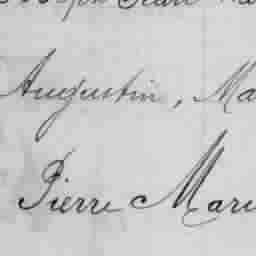 Augustin, Ma
Pierre Mari